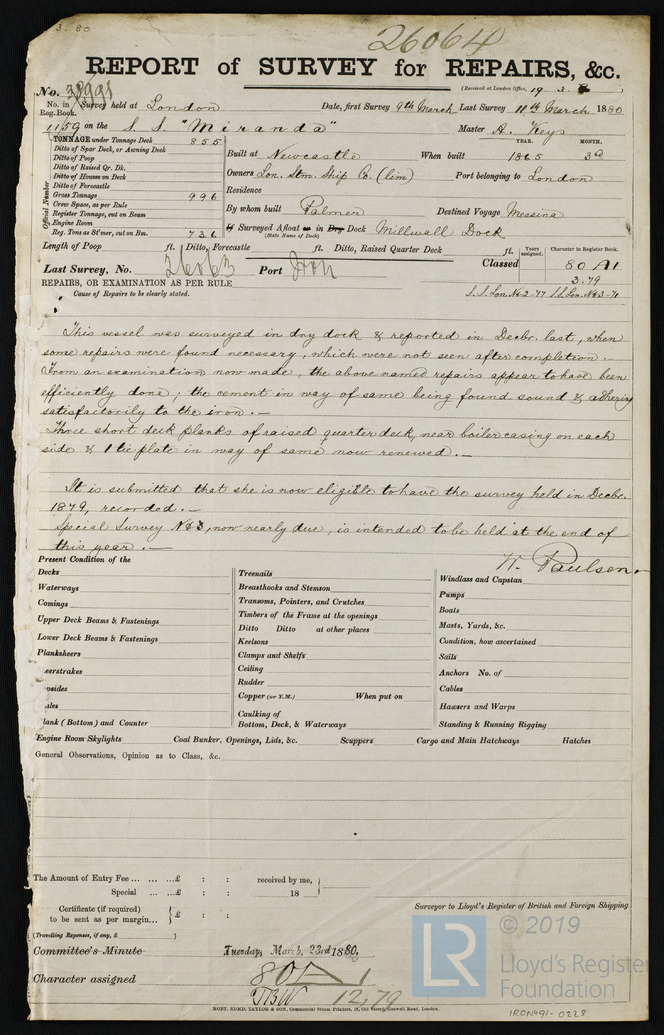 3.80
26064
REPORT of SURVEY for REPAIRS, &c.
(Received at London Office, 19 3
No. 38991
No. in Reg. Book. Survey held at London Date, first Survey 9th March Last Survey 11th March 1880
1159 on the S. S. "Miranda" Master A. Keys
TONNAGE under Tonnage Deck 855
Ditto of Spar Deck, or Awning Deck
Ditto of Poop
Ditto of Raised Qr. Dk.
Ditto of Houses on Deck
Ditto of Forecastle
Gross Tonnage 996
Crew Space, as per Rule
Register Tonnage, cut on Beam
Engine Room
Reg. Tons as St'mer, cut on Bm. 736
Official Number
YEAR. MONTH.
Built at Newcastle When built 1865 3rd
Owners Lon. Stm. Ship Co. (lim) Port belonging to London
Residence
By whom built Palmer Destined Voyage Messina
If Surveyed Afloat or in Dry Dock Millwall Dock
(State Name of Dock)
Length of Poop ft. Ditto, Forecastle ft. Ditto, Raised Quarter Deck ft.
Years assigned. Character in Register Book.
Last Survey, No. 26063 Port Iron Classed 80 A1
3.79
REPAIRS, OR EXAMINATION AS PER RULE
S.S. Lon. No 2-77 S.S. Lon. No 3-71
Cause of Repairs to be clearly stated.
This vessel was surveyed in dry dock & reported in Decbr. last, when
some repairs were found necessary, which were not seen after completion.
From an examination now made, the above named repairs appear to have been
efficiently done; the cement in way of same being found sound & adhering
satisfactorily to the iron. —
Three short deck planks of raised quarter deck, near boiler casing on each
side & 1 tie plate in way of same now renewed. —
It is submitted that she is now eligible to have the survey held in Decbr.
1879, recorded. —
Special Survey No 3, now nearly due, is intended to be held at the end of
this year. —
W. Paulsen
Present Condition of the
Decks
Waterways
Comings
Upper Deck Beams & Fastenings
Lower Deck Beams & Fastenings
Planksheers
eerstrakes
psides
ales
lank (Bottom) and Counter
Treenails
Breasthooks and Stemson
Transoms, Pointers, and Crutches
Timbers of the Frame at the openings
Ditto Ditto at other places
Keelsons
Clamps and Shelfs
Ceiling
Rudder
Copper (or Y.M.) When put on
Caulking of
Bottom, Deck, & Waterways
Windlass and Capstan
Pumps
Boats
Masts, Yards, &c.
Condition, how ascertained
Sails
Anchors No. of
Cables
Hawsers and Warps
Standing & Running Rigging
Engine Room Skylights Coal Bunker, Openings, Lids, &c. Scuppers Cargo and Main Hatchways Hatches
General Observations, Opinion as to Class, &c.
The Amount of Entry Fee ... ... ...£ : : received by me,
Special ... ...£ : : 18
Certificate (if required) to be sent as per margin... £ : :
Surveyor to Lloyd's Register of British and Foreign Shipping
(Travelling Expenses, if any, £ )
Committee's Minute Tuesday, March, 23rd 1880.
Character assigned 80 A 1
TBW 12,79
ROBT. EDMD. TAYLOR & SON, Commercial Steam Printers, 19, Old Street, Goswell Road, London.
LR
© 2019
Lloyd's Register
Foundation
IRON491-0228